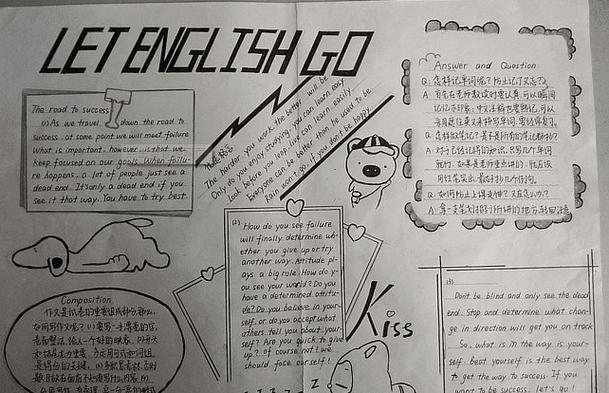 LET ENGLISH GO
The road to success
(1) As we travel down the road to
success, at some point we will meet failure
What is important, however, is that we
keep focused on our goals. When failu-
re happens, a lot of people just see a
dead end. It's only a dead end if you
see it that way. You have to try best.
The harder you work the better will be
Only do you enjoy studying, you can learn easy
Look before you leap, you can learn easily
Everyone can be better than he used to be.
Rain won't go, if you don't be happy.
Answer and Question
Q: 怎样记单词呢？防止记了又忘？
A: 首先在老师教读时要认真，可以
Q: 怎样做笔记？是不是所有的笔记都抄？
A: 对于已经记得的知识，只写几个单词
就行，如果是老师重点讲的，就应该
Q: 如何防止上课走神？又在怎么办？
A: 拿一支笔
(2) How do you see failure
will finally determine wh-
ether you give up or try
another way. Attitude pl-
ays a big role. How do y-
ou see your world? Do you
have a determined attitu-
de? Do you believe in your-
self, or do you accept what
others tell you about your-
self? Are you quick to give
up? of course not! we
should face our self!
Kiss
z z z z z
Composition
作文是试卷的重要组成部分，那么，
如何写作文呢？(1) 要写一手漂亮的字，
(3)
Don't be blind and only see the dead
end. Stop and determine what chan-
ge in direction will get you on track
So, what is in the way is your-
self. beat yourself is the best way
to get the way to success. If you
want to be success, let's go!